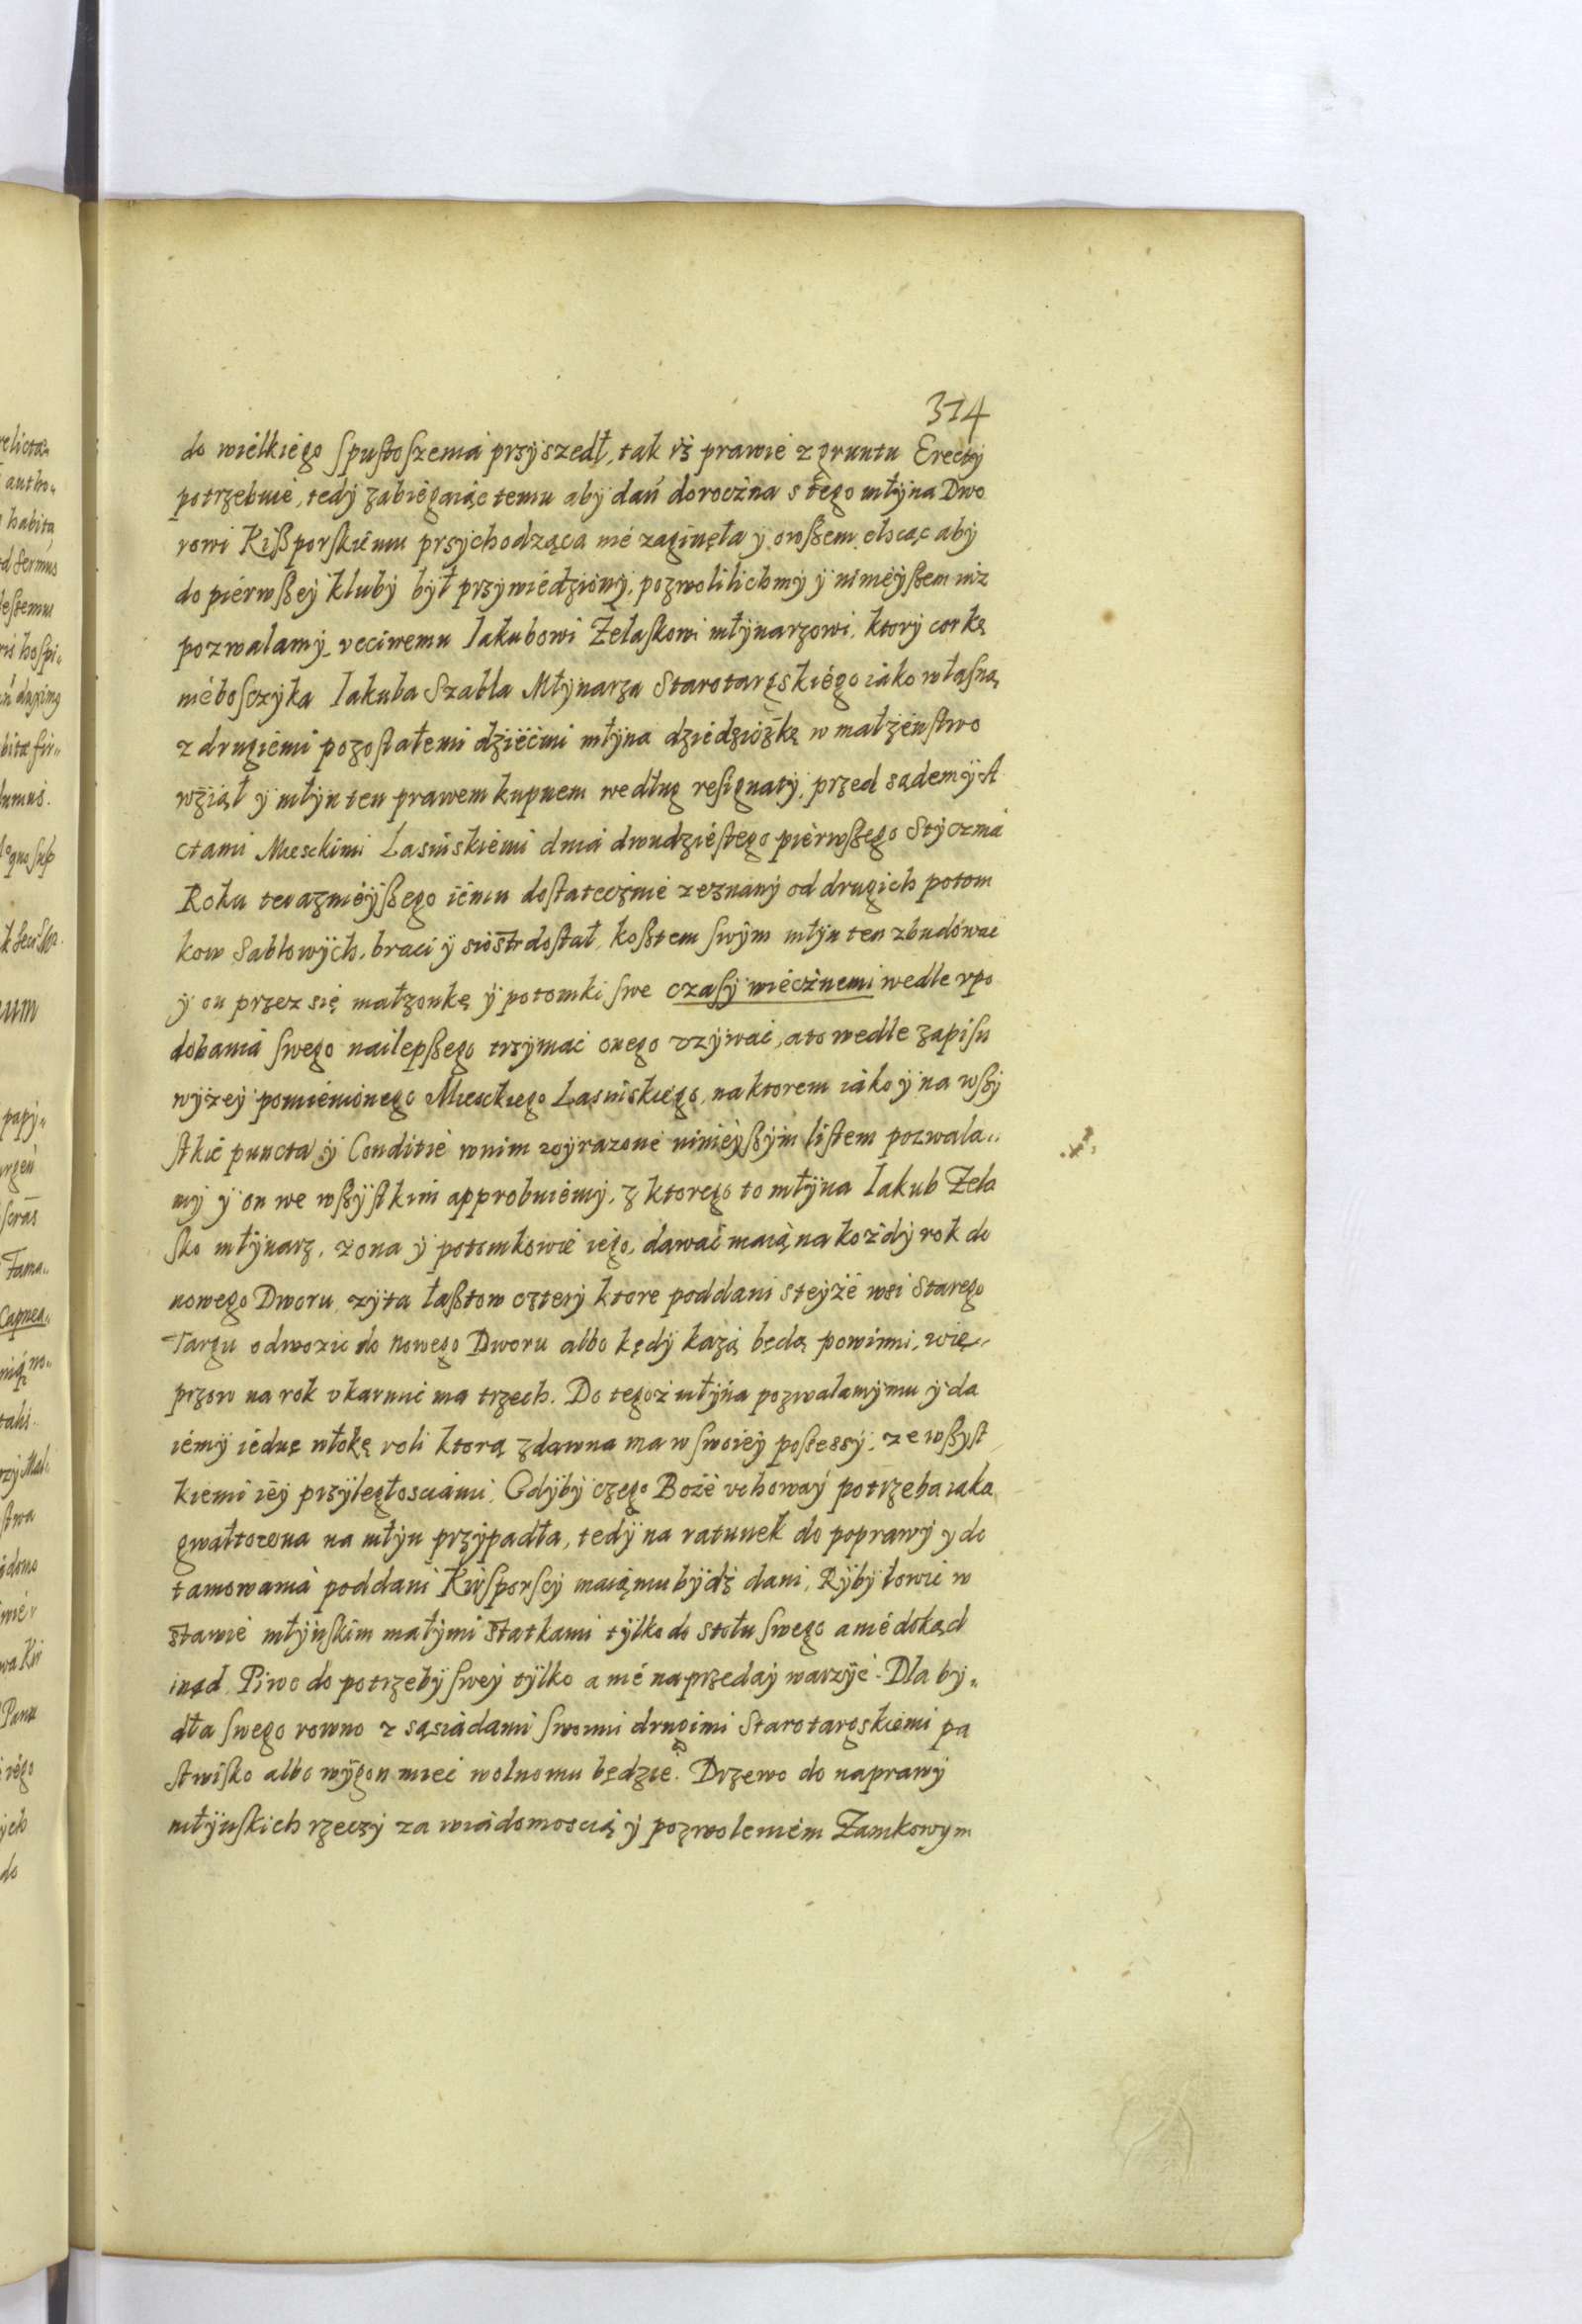 314
do wielkiego spustoszenia przyszedł, tak iż prawie z gruntu Erectÿ
potrzebuie, tedÿ zabiegaiąc temu abÿ dań doroczna s tego młÿna Dwo
rowi Kiszporskiemu przÿchodząca nie zaginęła ÿ owszem chcąc abÿ
do pierwszeÿ klubÿ bÿł przÿwiedzionÿ, pozwolilichmÿ ÿ ninieÿszem iuż
pozwalamÿ vcciwemu Iakubowi Żelaskowi młÿnarzowi, ktorÿ corkę
nieboszczÿka Iakuba Szabla Młÿnarza Starotargskiego iako własną
z drugiemi pozostałemi dziećmi młÿna dziedziczkę w małżeństwo
wziął ÿ młÿn ten prawem kupnem według resignatÿ, przed sądem ÿ A
ctami Miesckimi Lasinskiemi dnia dwudziestego pierwszego Stÿcznia
Roku teraznieÿszego iemu dostatecznie zeznanÿ od drugich potom
kow Sablowÿch, braci ÿ siostr dostał, kosztem swÿm młÿn ten zbudówac
ÿ on przez się małżonkę ÿ potomki swe czasÿ wiecznemi wedle vpo
dobania swego nailepszego trzÿmac onego vzÿwac, a to wedle zapisu
wÿzeÿ pomienionego Miesckiego Lasinskiego, na ktorem iako ÿ na wszÿ
stkie puncta ÿ Conditie w nim wÿrazone ninieÿszÿm listem pozwala„
mÿ ÿ on we wszÿstkim approbuiemÿ, z ktorego to młÿna Iakub Zela
sko młÿnarz, zona ÿ potomkowie iego, dawać maią na kozdÿ rok do
nowego Dworu zÿta łasztow czterÿ ktore poddani steÿże wsi Starego
Targu odwozic do nowego Dworu albo kędÿ każą będą powinni, wie„
przow na rok vkarmic ma trzech. Do tegoż młÿna pozwalamÿ mu ÿ da
iemÿ iednę włokę roli ktorą zdawna ma w swoieÿ possessÿ, ze wszÿst
kiemi ieÿ przÿległosciami, Gdÿbÿ czego Boże vchowaÿ potrzeba iaka
gwałtowna na młÿn przÿpadła, tedÿ na ratunek do poprawÿ y do
tamowania poddani Kiszporscÿ maią mu bÿdź dani, Rÿbÿ łowić w
stawie młÿńskim małÿmi statkami tÿlko do stołu swego a nie dokąd
inąd. Piwo do potrzebÿ sweÿ tÿlko a nie na przedaÿ warzÿć. Dla by„
dła swego rowno z sąsiadami swoimi drugimi Starotargskiemi pa
stwisko albo wÿgon miec wolno mu będzie. Drzewo do naprawÿ
młÿńskich rzeczÿ za wiadomoscią ÿ pozwoleniem Zamkowym